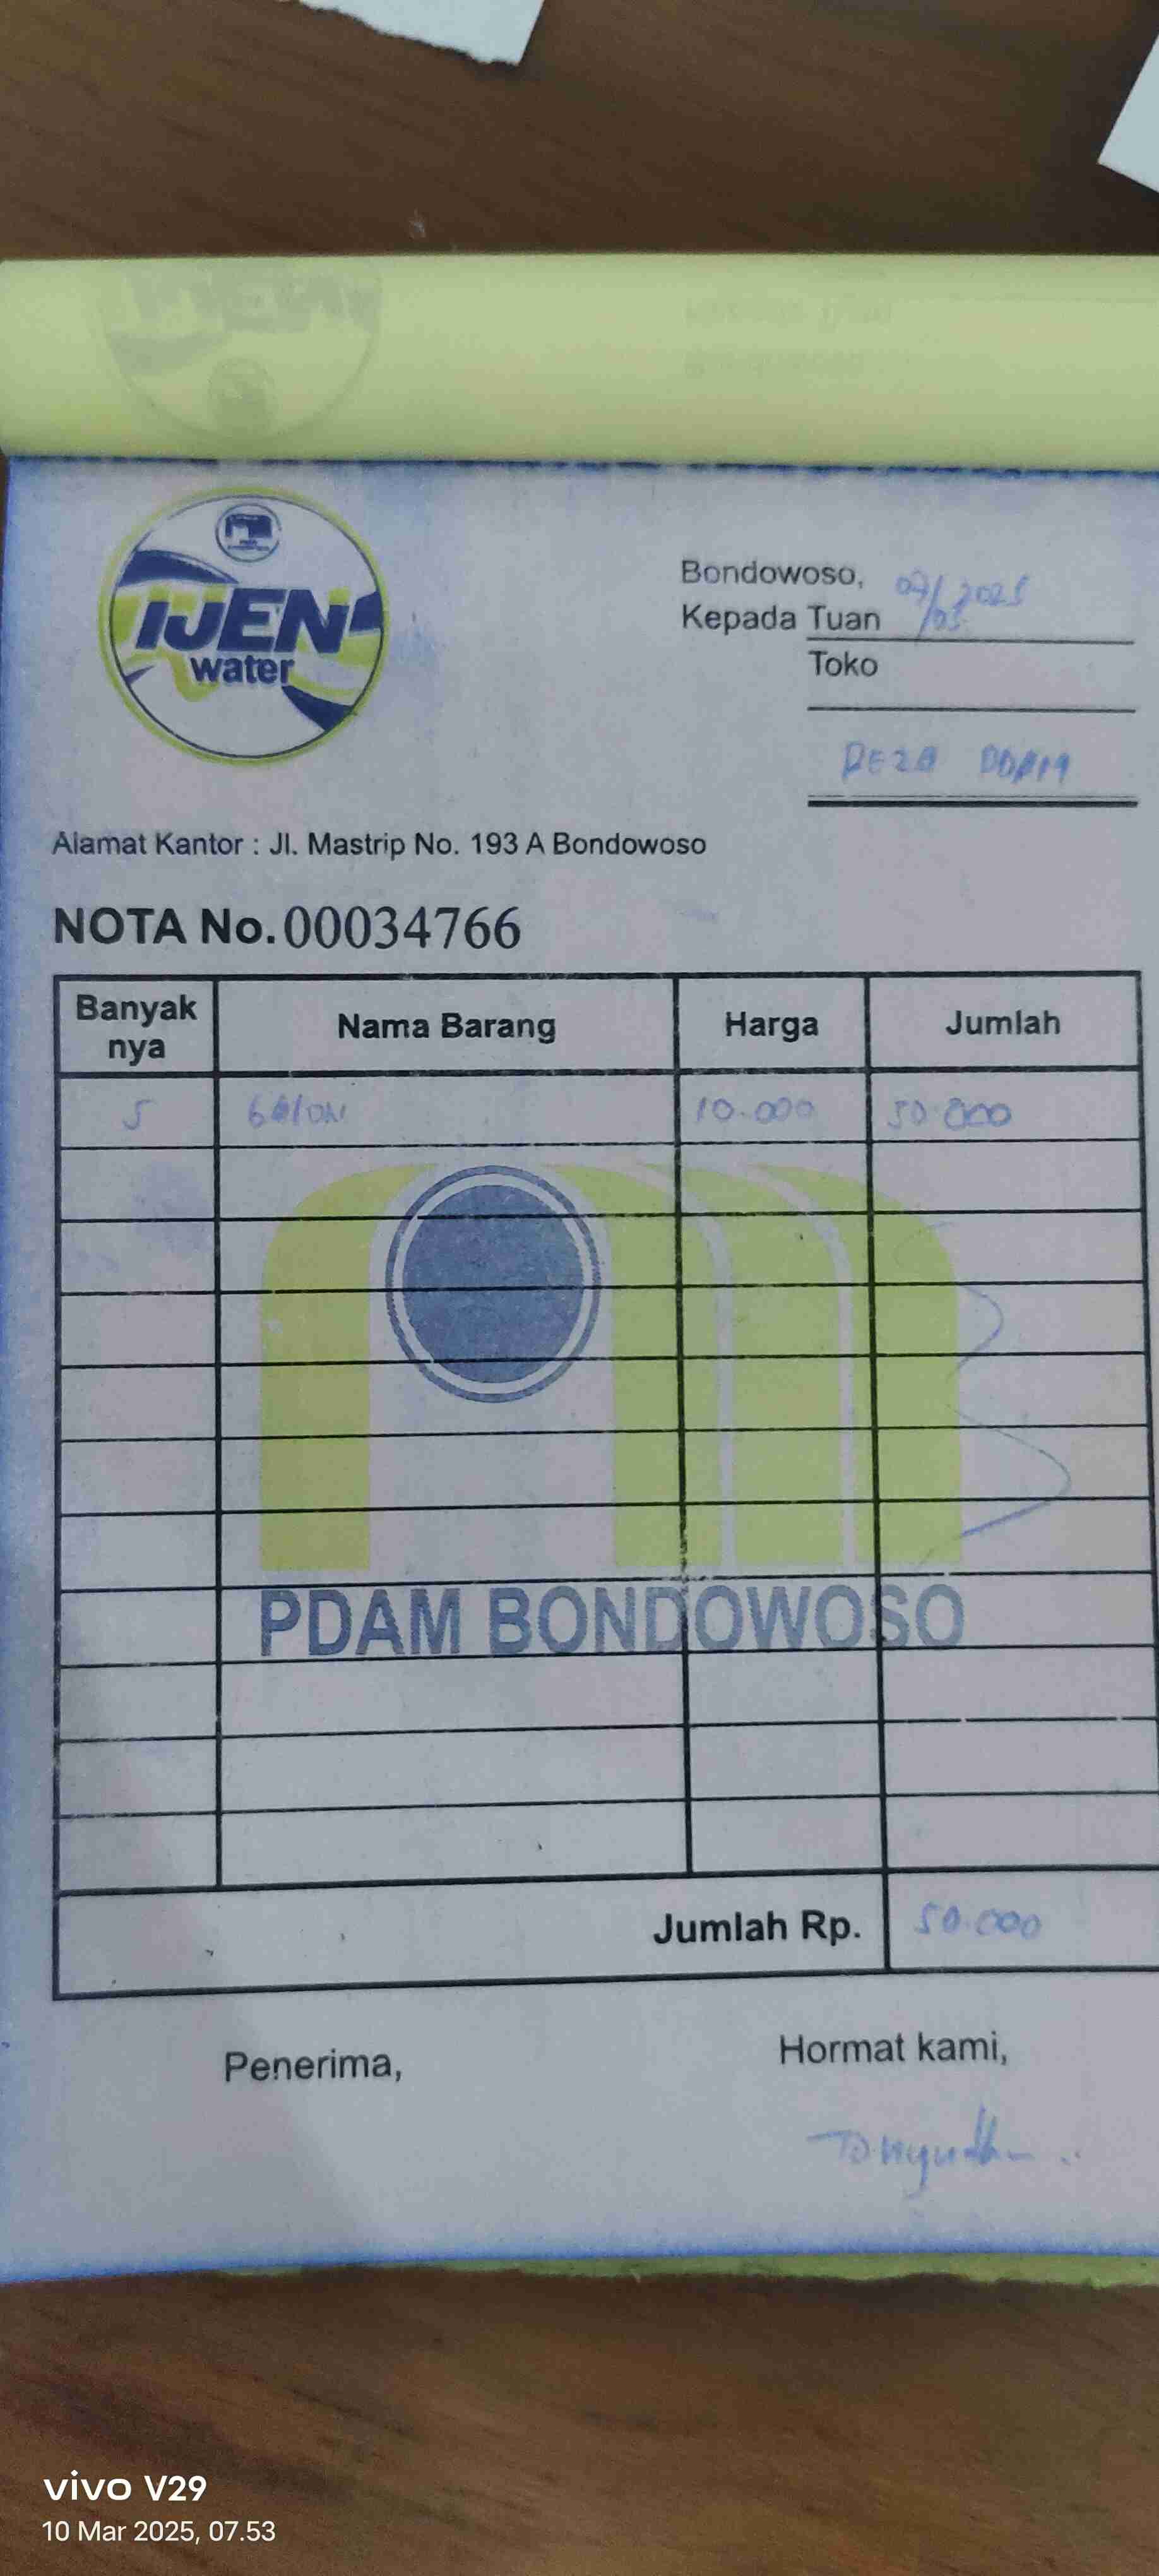 IJEN
water
Bondowoso, 07/03 2025
Kepada Tuan
Toko
REZA PDAM
Alamat Kantor : Jl. Mastrip No. 193 A Bondowoso
NOTA No. 00034766
Banyak nya Nama Barang Harga Jumlah
5 GALON 10.000 50.000
PDAM BONDOWOSO
Jumlah Rp. 50.000
Penerima, Hormat kami,
vivo V29
10 Mar 2025, 07.53